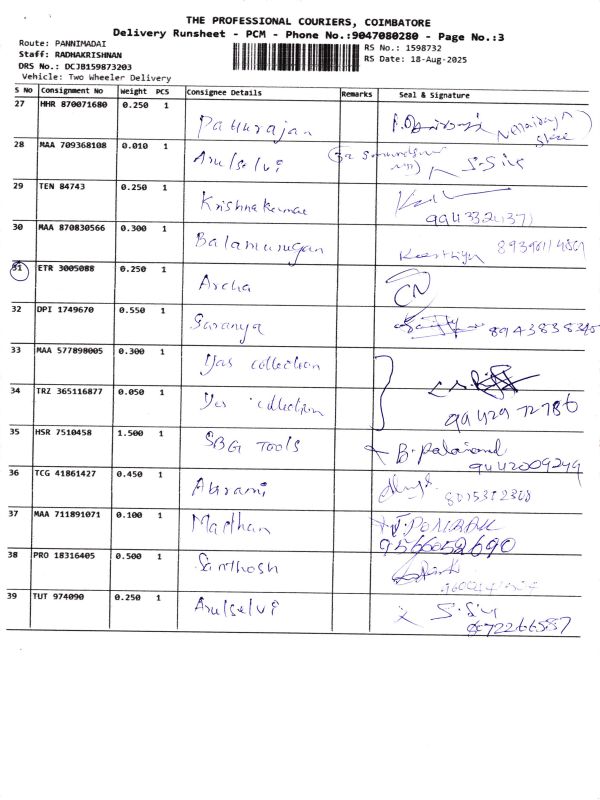 THE PROFESSIONAL COURIERS, COIMBATORE
Delivery Runsheet - PCM - Phone No.:9047080280 - Page No.:3
Route: PANNIMADAI
Staff: RADHAKRISHNAN
DRS No.: DCJB159873203
Vehicle: Two Wheeler Delivery
RS No.: 1598732
RS Date: 18-Aug-2025
S No Consignment No Weight PCS Consignee Details Remarks Seal & Signature
27 HHR 870071680 0.250 1
28 MAA 709368108 0.010 1 Arulselvi
29 TEN 84743 0.250 1 Krishnakumar
30 MAA 870830566 0.300 1 Balamurugan
31 ETR 3005088 0.250 1 Archa CN
32 DPI 1749670 0.550 1 Saranya
33 MAA 577898005 0.300 1 Das collection
34 TRZ 365116877 0.050 1 Das collection
35 HSR 7510458 1.500 1 SBG TOOLS 9442009249
36 TCG 41861427 0.450 1 Abirami
37 MAA 711891071 0.100 1 Madhan
9566052690
38 PRO 18316405 0.500 1 Santhosh
39 TUT 974090 0.250 1 Arulselvi